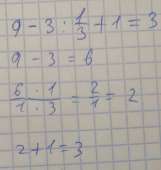 9 - 3 : 1/3 + 1 = 3
9 - 3 = 6
6 · 1 / 1 · 3 = 2/1 = 2
2 + 1 = 3